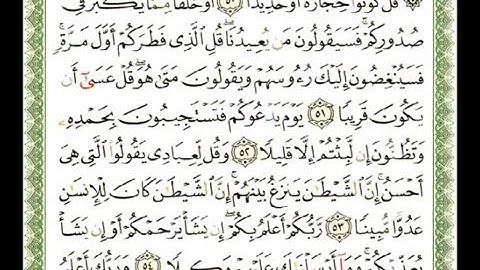 قُلْ كُونُوا۟ حِجَارَةً أَوْ حَدِيدًا ۝٥٠ أَوْ خَلْقًا مِّمَّا يَكْبُرُ فِى
صُدُورِكُمْ ۚ فَسَيَقُولُونَ مَن يُعِيدُنَا ۖ قُلِ ٱلَّذِى فَطَرَكُمْ أَوَّلَ مَرَّةٍ ۚ
فَسَيُنْغِضُونَ إِلَيْكَ رُءُوسَهُمْ وَيَقُولُونَ مَتَىٰ هُوَ ۖ قُلْ عَسَىٰٓ أَن
يَكُونَ قَرِيبًا ۝٥١ يَوْمَ يَدْعُوكُمْ فَتَسْتَجِيبُونَ بِحَمْدِهِۦ
وَتَظُنُّونَ إِن لَّبِثْتُمْ إِلَّا قَلِيلًا ۝٥٢ وَقُل لِّعِبَادِى يَقُولُوا۟ ٱلَّتِى هِىَ
أَحْسَنُ ۚ إِنَّ ٱلشَّيْطَٰنَ يَنزَغُ بَيْنَهُمْ ۚ إِنَّ ٱلشَّيْطَٰنَ كَانَ لِلْإِنسَٰنِ
عَدُوًّا مُّبِينًا ۝٥٣ رَّبُّكُمْ أَعْلَمُ بِكُمْ ۖ إِن يَشَأْ يَرْحَمْكُمْ أَوْ إِن يَشَأْ
يُعَذِّبْكُمْ ۚ وَمَآ أَرْسَلْنَٰكَ عَلَيْهِمْ وَكِيلًا ۝٥٤ وَرَبُّكَ أَعْلَمُ